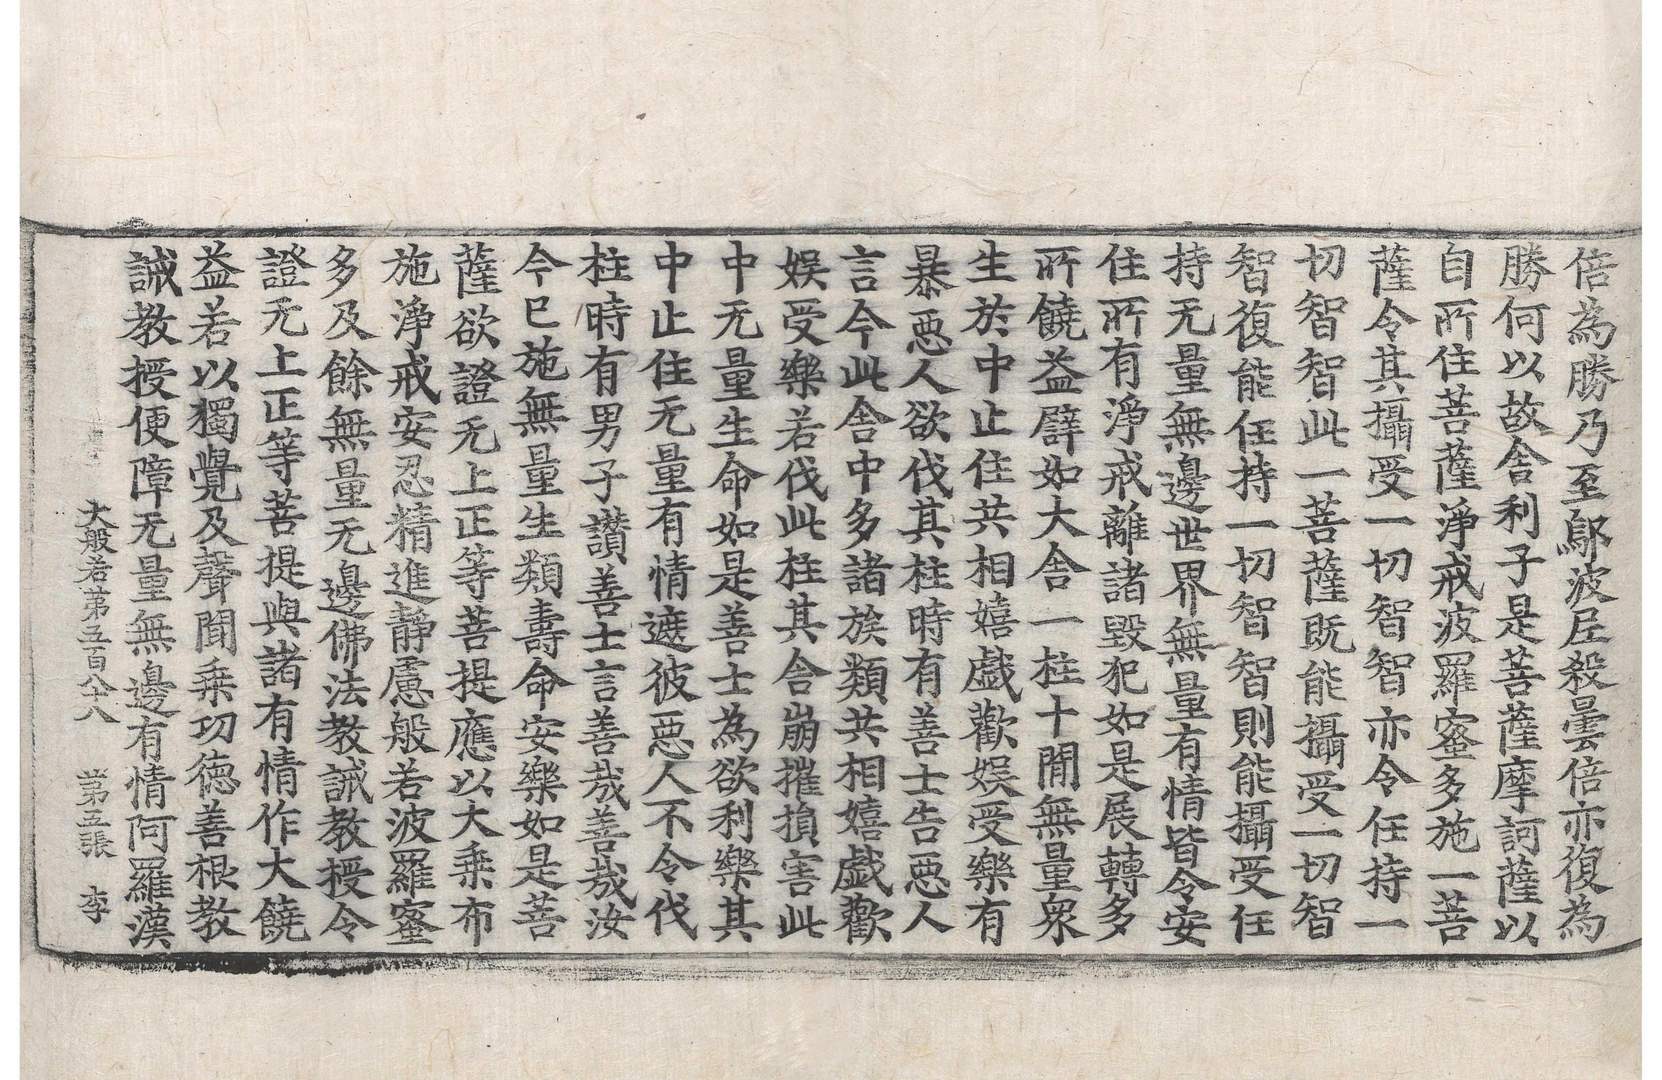 倍為勝乃至鄔波尼殺曇倍亦復為
勝何以故舍利子是菩薩摩訶薩以
自所住菩薩淨戒波羅蜜多施一菩
薩令其攝受一切智智亦令任持一
切智智此一菩薩既能攝受一切智
智復能任持一切智智則能攝受任
持无量無邊世界無量有情皆令安
住所有淨戒離諸毀犯如是展轉多
所饒益譬如大舍一柱十閒無量眾
生於中止住共相嬉戲歡娛受樂有
暴惡人欲伐其柱時有善士告惡人
言今此舍中多諸族類共相嬉戲歡
娛受樂若伐此柱其舍崩摧損害此
中无量生命如是善士為欲利樂其
中止住无量有情遮彼惡人不令伐
柱時有男子讚善士言善哉善哉汝
今已施無量生類壽命安樂如是菩
薩欲證无上正等菩提應以大乘布
施淨戒安忍精進靜慮般若波羅蜜
多及餘無量无邊佛法教誡教授令
證无上正等菩提與諸有情作大饒
益若以獨覺及聲聞乘功德善根教
誡教授便障无量無邊有情阿羅漢
大般若第五百八十八 第五張 李